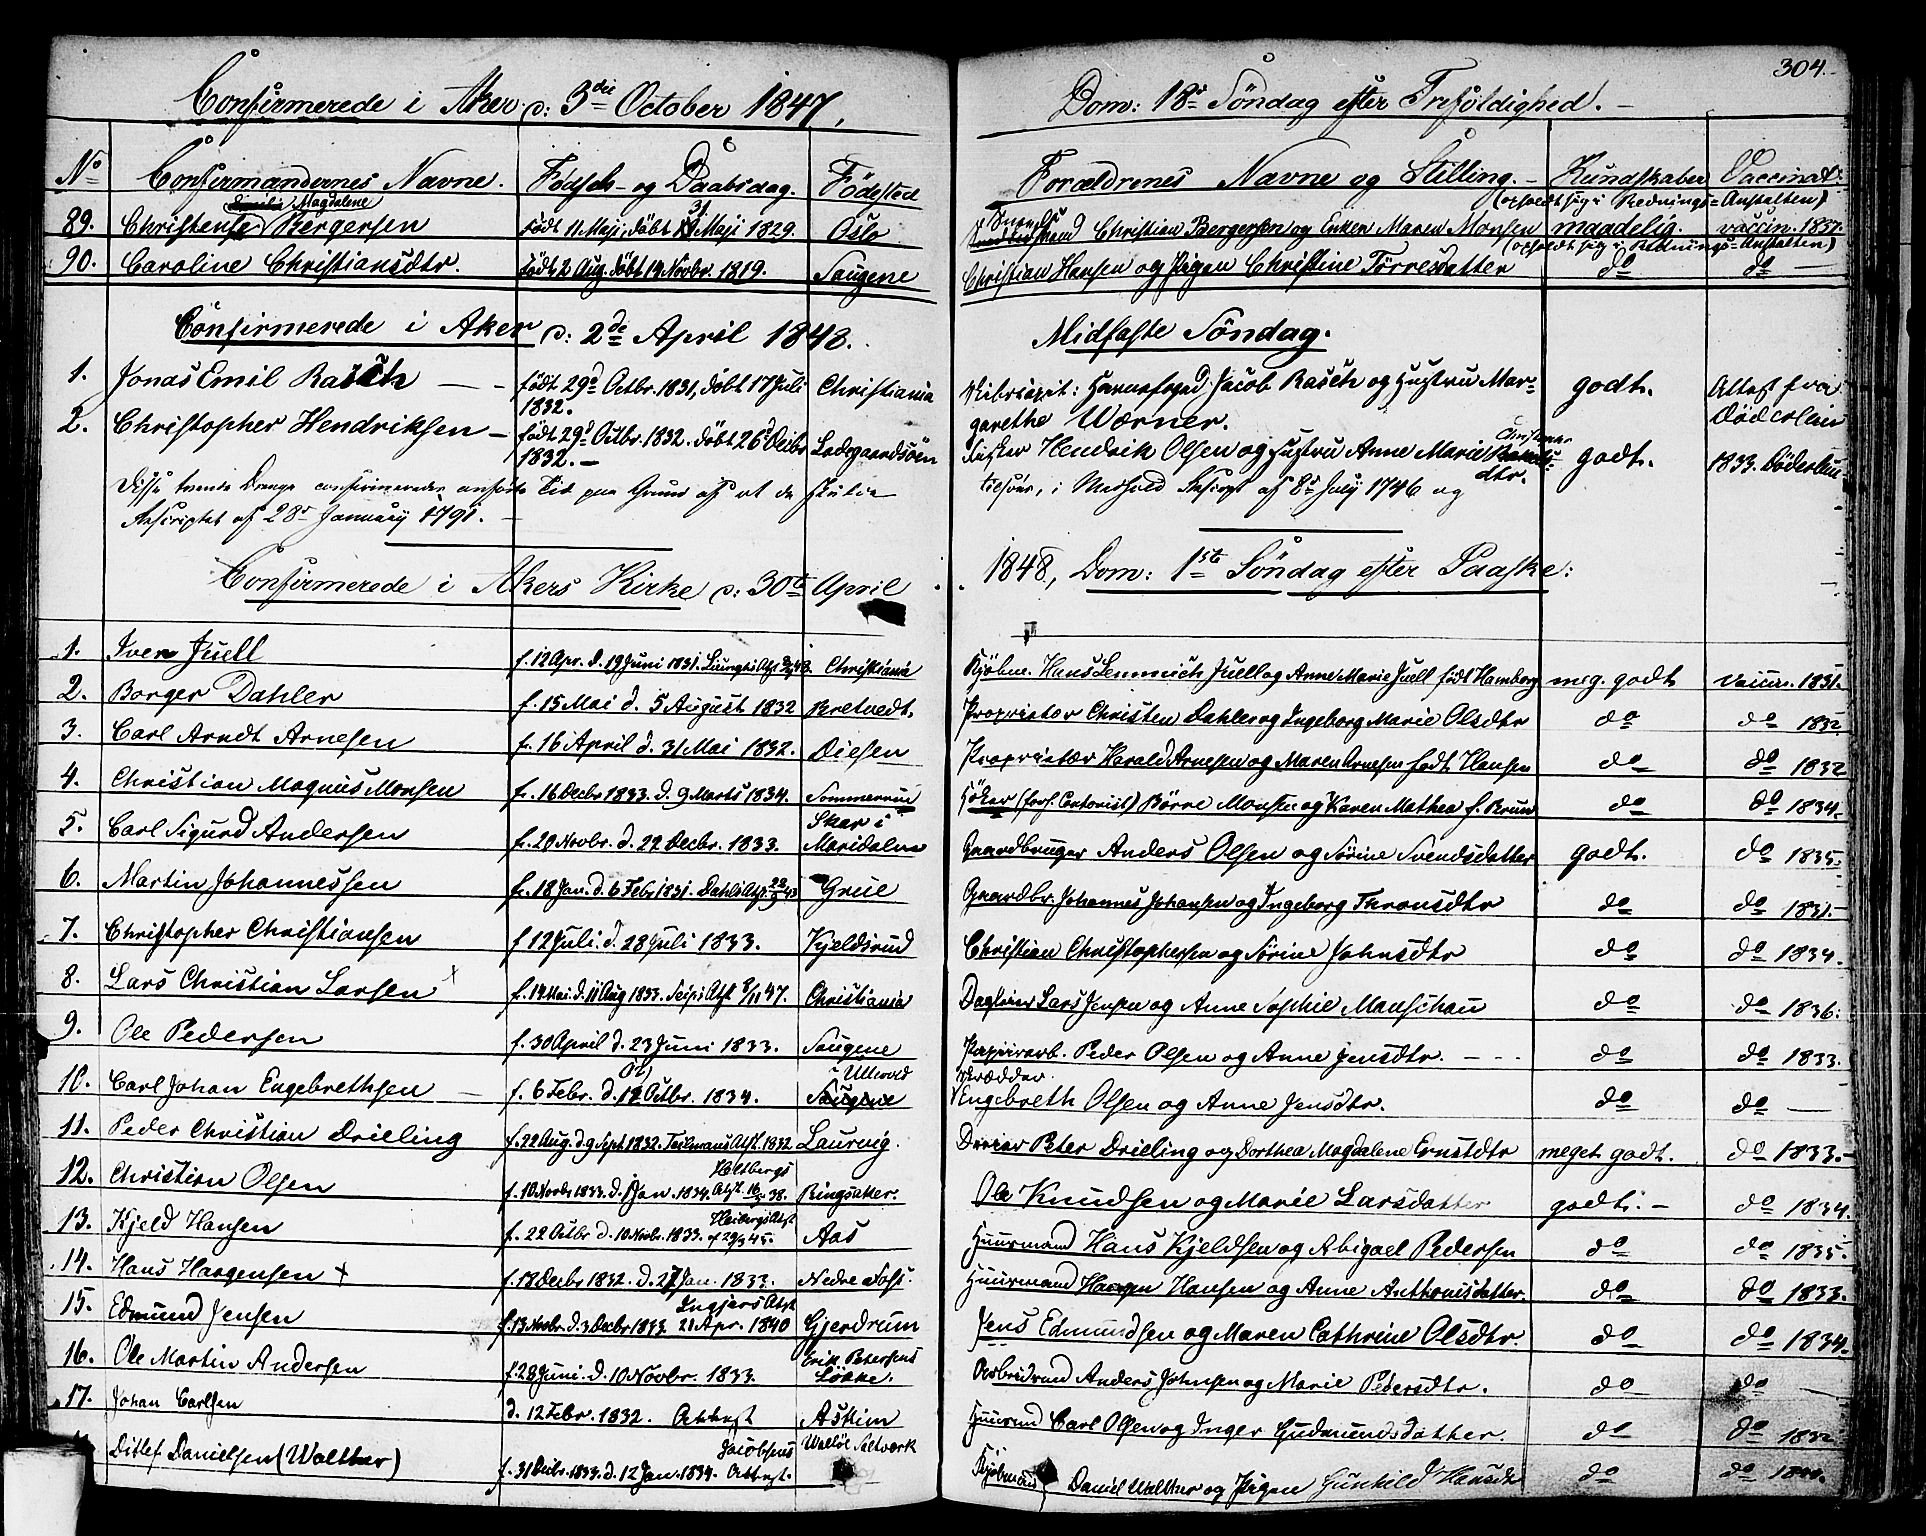 304.
Confirmerede i Aker d: 3die October 1847, Dom: 18de Søndag efter Trefoldighed. –
No Confirmandernes Navne. Fødsels- og Daabsdag. Fødested Forældrenes Navne og Stilling. – Kundskaber Vaccinat:
Magdalene (opholdt sig i Rednings=Anstalten)
89. Christense Bergersen født 11 Maji, døbt 31 Maji 1829. Oslo Christian Bergersen og Enken Maren Monsen maadelig. vaccin. 1837.
(opholdt sig i Rednings=Anstalten)
90. Caroline Christiansdtr. født 2 Aug. døbt 14 Novbr. 1819. Saugene Christian Hansen og Pigen Christine Torresdatter do do –
Confirmerede i Aker d: 2de April 1848. Midfaste Søndag.
1. Jonas Emil Rasch – – født 29d Octbr. 1831, døbt 17 Juli 1832. Christiania Jacob Rasch og Hustru Mar=
garethe Wærner. godt. Attest fra Døderlein
2. Christopher Hendriksen – født 29d Octbr. 1832. døbt 26d Decbr 1832. – Ladegaardsøen Hendrik Olsen og Hustru Anne Marie Christians
dtr. godt. 1833. Døderlein
Disse tvende Drenge confirmeredes anførte Tid paa Grund af at de skulde tilsøes, i Medhold Rescript af 8de July 1746 og
Rescriptet af 28de January 1791. –
Confirmerede i Akers Kirke d: 30te April 1848, Dom: 1ste Søndag efter Paaske:
1. Iver Juell f. 12 Apr. d. 19 Juni 1831. Christiania Kjøbm. Hans Lemmich Juell og Anne Marie Juell født Hamborg meg. godt vaccin. 1831.
2. Borger Dahler f. 15 Mai d. 5 August 1832 Bretvedt. Proprietær Christen Dahler og Ingeborg Marie Olsdtr do do 1832.
3. Carl Arndt Arnesen f. 16 April d. 31 Mai 1832. Diesen Proprietær Harald Arnesen og Maren Arnesen født Hansen do do 1832
4. Christian Magnus Monsen f. 16 Decbr 1833. d. 9 Marts 1834. Sommerrud (forh. Contorist) Børre Monsen og Karen Mathea f. Bruun do do 1834.
5. Carl Sigurd Andersen f. 20 Novbr. d. 22 Decbr. 1833. Skar i Maridalen Gaardbruger Anders Olsen og Sørine Svendsdatter godt. do 1835.
6. Martin Johannessen f. 18 Jan. d. 6 Febr 1831. Dahls Att. Grue Gaardbr. Johannes Johansen og Ingeborg Thronsdtr do do 1831.
7. Christopher Christiansen f 12 Juli. d. 28 Juli 1833. Kjeldsrud Christian Christophersen og Sørine Johnsdtr do do 1834.
8. Lars Christian Larsen x f. 14 Mai. d. 11 Aug 1833. Seips Att 8/11 47. Christiania Daglein Lars Jensen og Anne Sophie Manschau do do 1836.
9. Ole Pedersen f. 30 April d. 23 Juni 1833. Saugene Papirarb. Peder Olsen og Anne Jensdtr. – – – do do 1833.
10. Carl Johan Engebrethsen f. 6 Febr. d. 12 Octbr. 1834. i Ullevold Saugene Skrædder Engebreth Olsen og Anne Jensdtr. do do –
11. Peder Christian Drieling f. 22 Aug. d. 9 Sept 1832. Teilmans Att. 1832 Laurvig. Peter Drieling og Dorthea Magdalene Ernstdtr meget godt. do 1833.
12. Christian Olsen f. 10 Novbr 1833. d. 1 Jan. 1834. Holtbergs Att. 38. Ringsaker. Ole Knudsen og Marie Larsdatter godt. – do 1834.
13. Kjeld Hansen f. 22 Octbr d. 10 Novbr. 1833. Heibergs Att 45. Aas Huusmand Hans Kjeldsen og Abigael Pedersen do do 1835.
14. Hans Haagensen x f. 18 Decbr 1832. d. 27 Jan. 1833. Nedre Fos. Huusmand Haagen Hansen og Anne Anthonisdatter. do do 1833.
15. Edmund Jensen f. 13 Novbr. d. 3 Decbr 1833. Ingjers Att 21 Apr. 1840 Gjerdrum Jens Edmundsen og Maren Cathrine Olsdtr. do do 1834
16. Ole Martin Andersen f. 28 Juni. d. 10 Novbr. 1833. Erik Petersens Løkke. Arbeidsmd Anders Johnsen og Marie Pedersdtr. do do –
17. Johan Carlsen d. 12 Febr. 1832. Attest Askim Huusmd Carl Olsen og Inger Gudmundsdatter. do do 1832
Ditlef Danielsen (Walther) f. 31 Decbr. 1833. d. 12 Jan. 1834. Jacobsens Attest. Walløe Saltværk Kjøbmand Daniel Walther og Pigen Gunhild Hansdtr do do